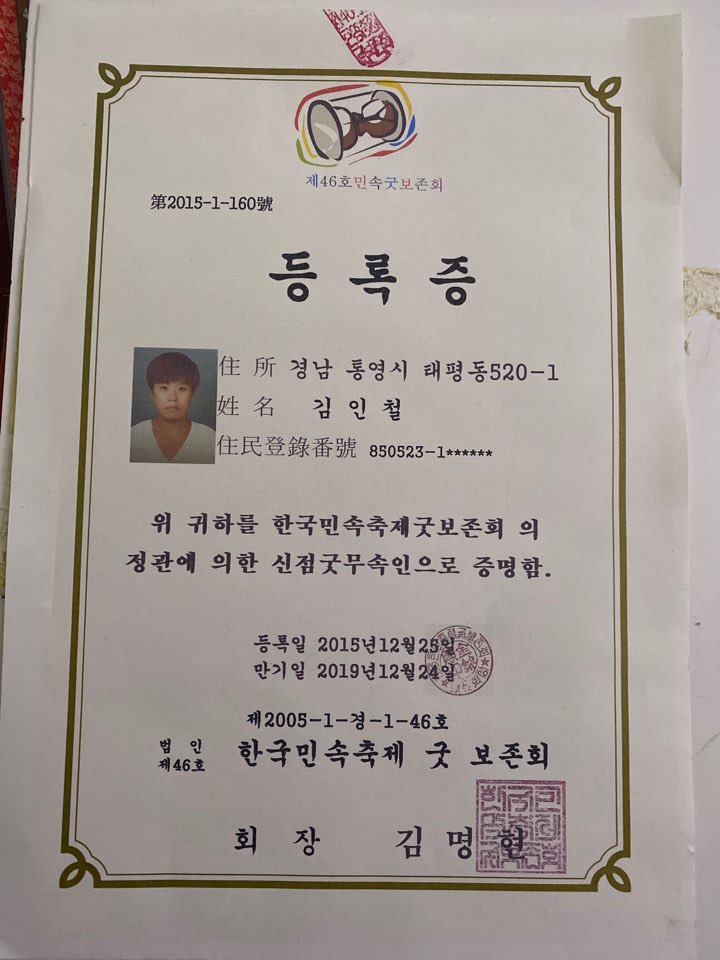 제46호민속굿보존회
第2015-1-160號
등록증
住所 경남 통영시 태평동520-1
姓名 김인철
住民登錄番號 850523-1******
위 귀하를 한국민속축제굿보존회 의
정관에 의한 신점굿무속인으로 증명함.
등록일 2015년12월25일
만기일 2019년12월24일
제2005-1-경-1-46호
법인
제46호 한국민속축제 굿 보존회
회장 김명헌